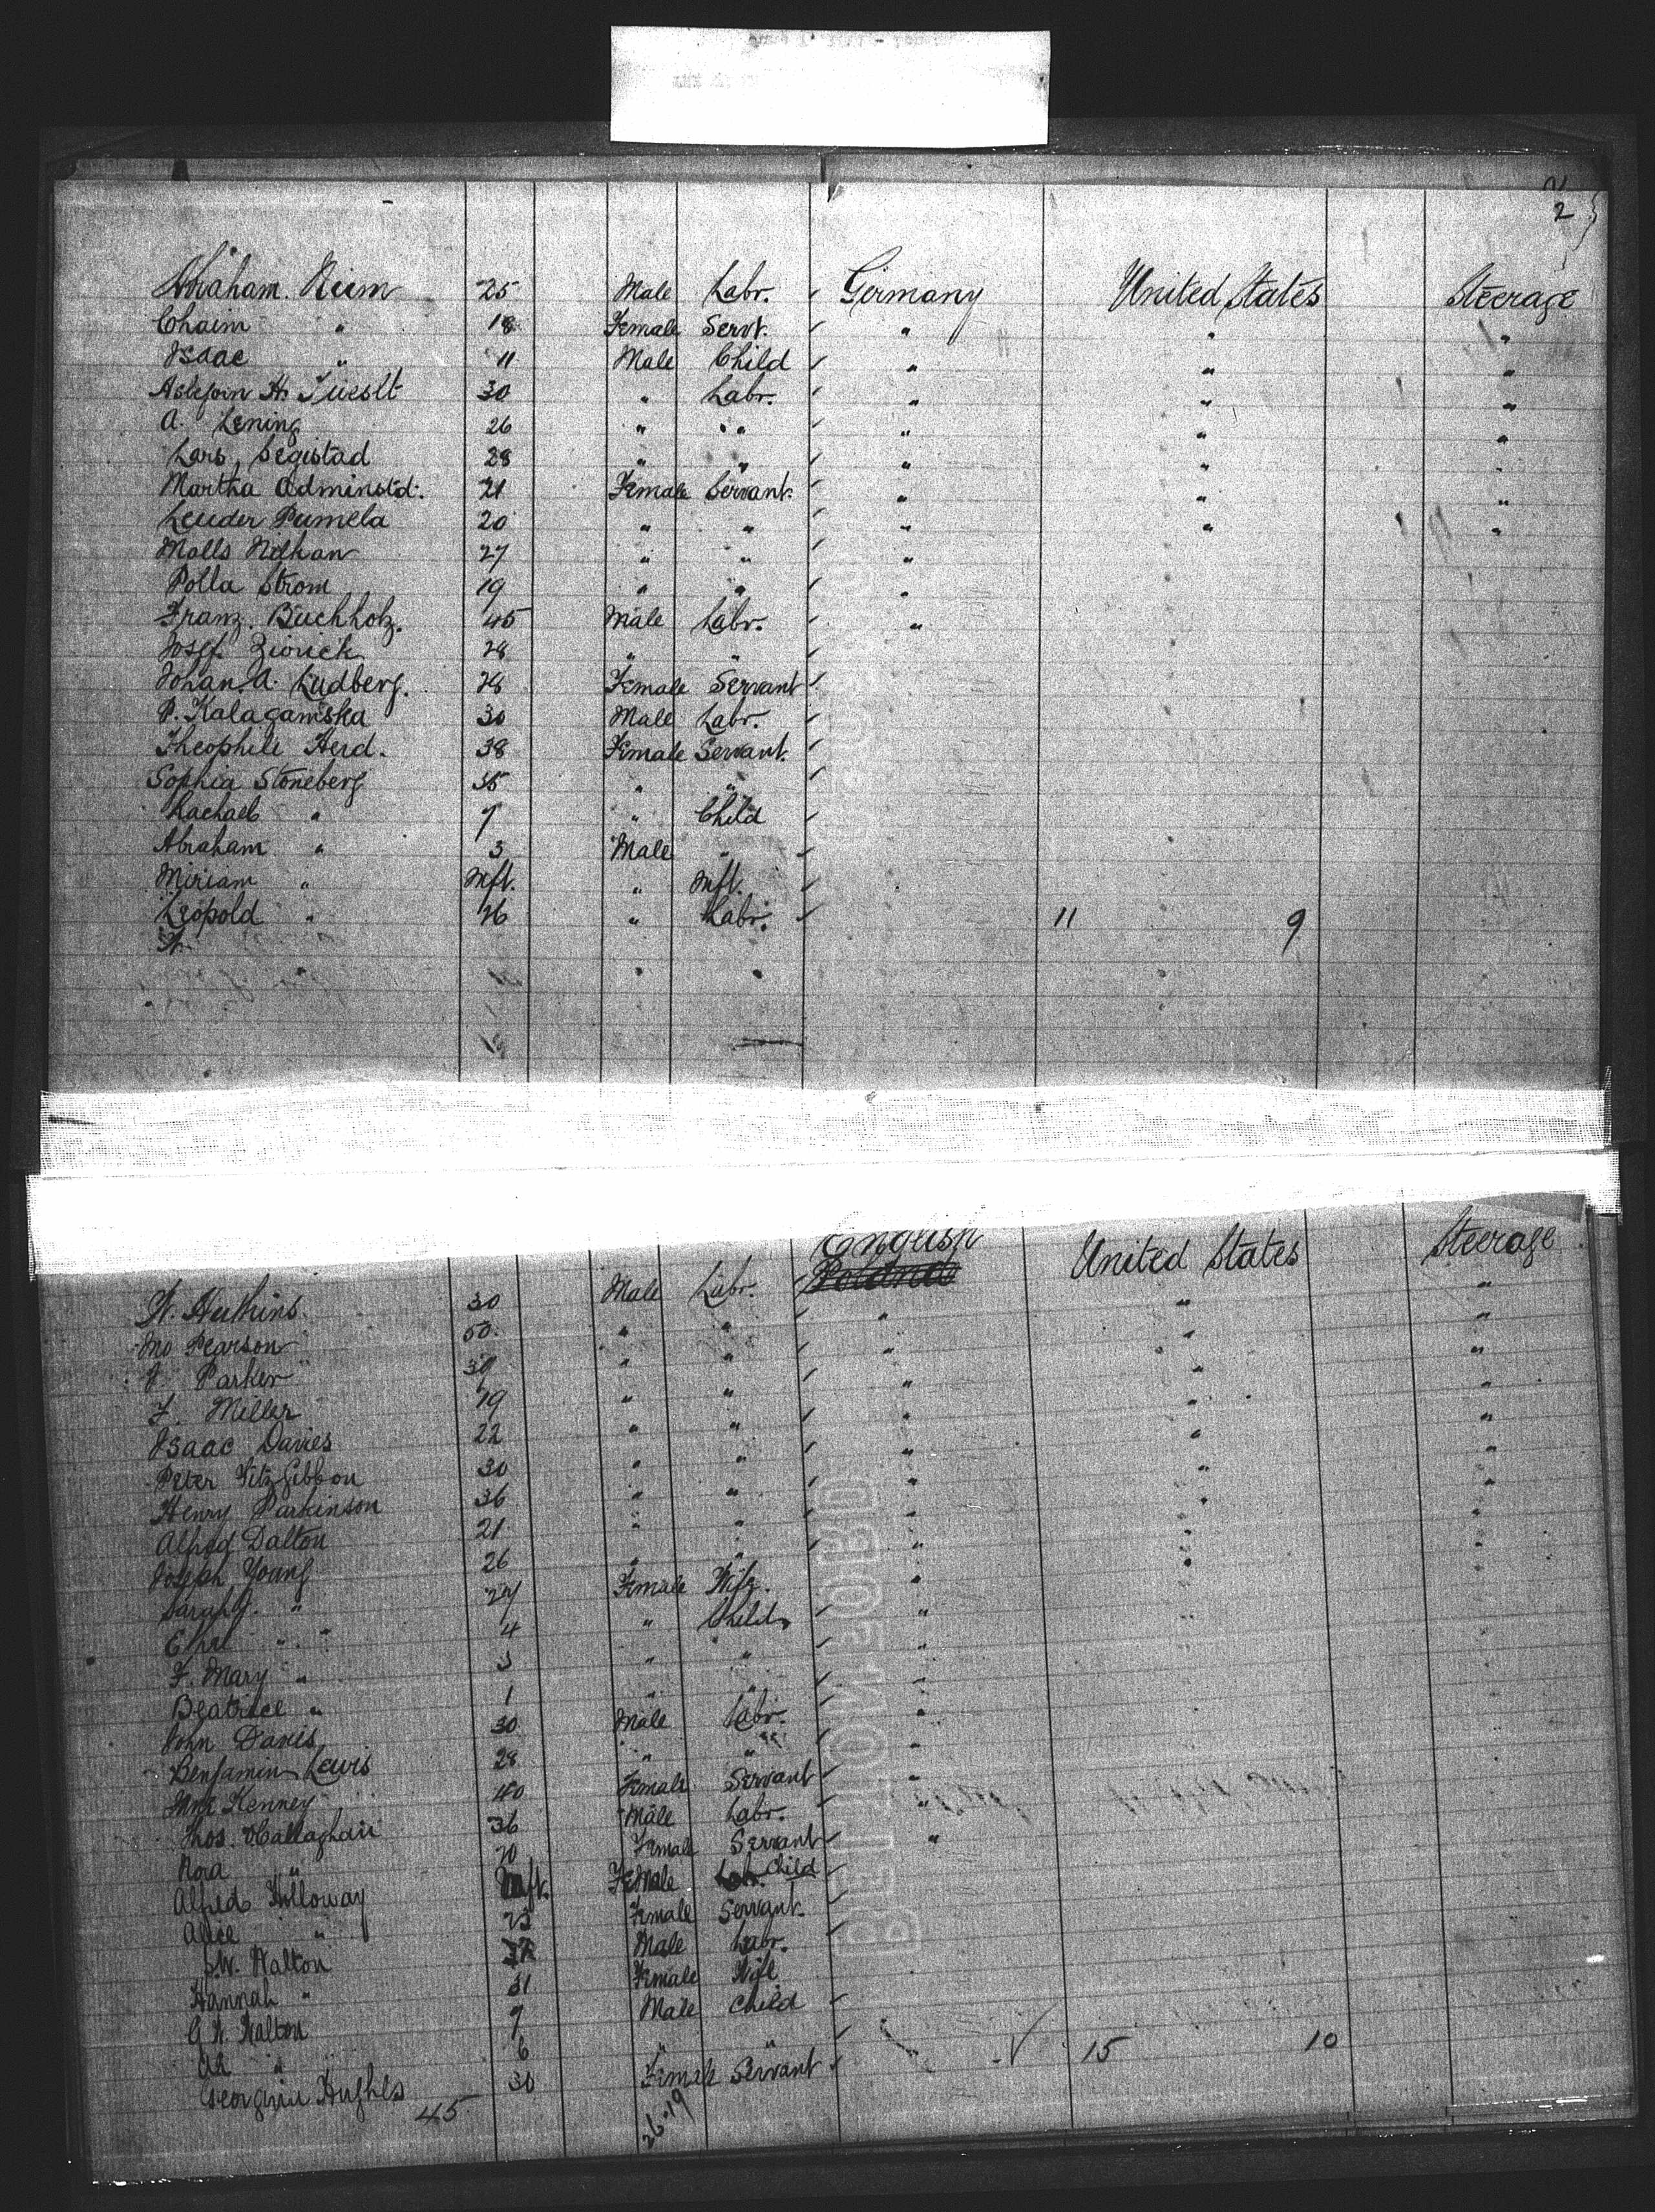 2
Abraham. Neim 25 Male Labr. Germany United States Steerage
Chaim " 18 Female Servt. " " "
Isaac " 11 Male Child " " "
H. 30 " Labr. " " "
A. Lening 26 " " " " "
Lars Segistad 28 " " " " "
Martha Adminstd. 21 Female Servant. " " "
Leuder Pumela 20 " " " " "
Malls Nathan 27 " " "
Polla Strom 19 " " "
Franz. Buchholz. 45 Male Labr. "
Josef. 28 " "
Johan. A. Ludberg. 28 Female Servant
P. Kalagamska 30 Male Labr.
Theophile Herd. 38 Female Servant.
Sophia Stoneberg 35 " "
Rachael " 7 " Child
Abraham " 3 Male "
Miriam " Inft. " Inft.
Leopold " 26 " Labr. 11 9
English United States Steerage
W. Huthins. 30 Male Labr. Poland "
Jno Pearson 50. " " " " "
J Parker 39 " " " " "
F. Miller 19 " " " " "
Isaac Davies 22 " " " " "
Peter FitzGibbon 30 " " " " "
Henry Parkinson 36 " " " " "
Alfred Dalton 21 " " " " "
Joseph Young 26 " " " " "
Sarah J. " 27 Female Wife. "
" 4 " Child "
F. Mary " 3 " " "
Beatrice " 1 " "
John Davis 30 Male Labr. "
Benjamin Lewis 28 " " "
Kenney 40 Female Servant "
Thos. OCallaghan 36 Male Labr. "
Nora " 20 Female Servant "
Alfred Holloway Inft. Female Labr. Child
Alice " 23 Female Servant.
J.W. Walton Male Labr.
Hannah " 31 Female Wife
G W. Walton 9 Male Child
" 6 " " 15 10
Georgina Hughes 30 Female Servant
45
26-19